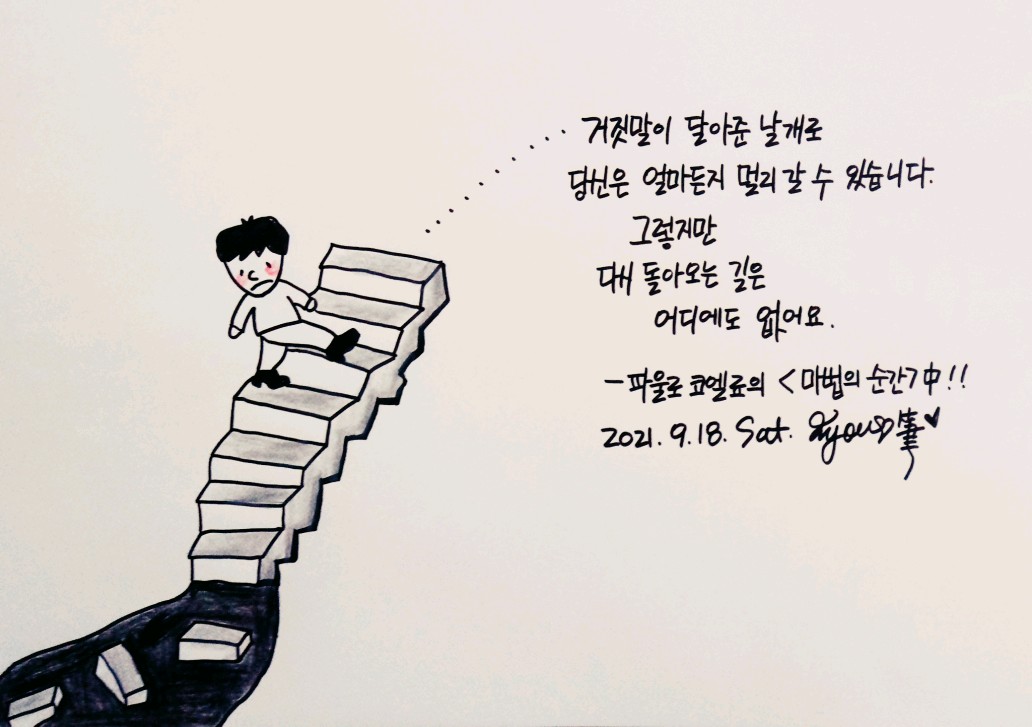 거짓말이 달아준 날개로
당신은 얼마든지 멀리 갈 수 있습니다.
그렇지만
다시 돌아오는 길은
어디에도 없어요.
- 파울로 코엘료의 <마법의 순간> 中!!
2021. 9. 18. Sat.